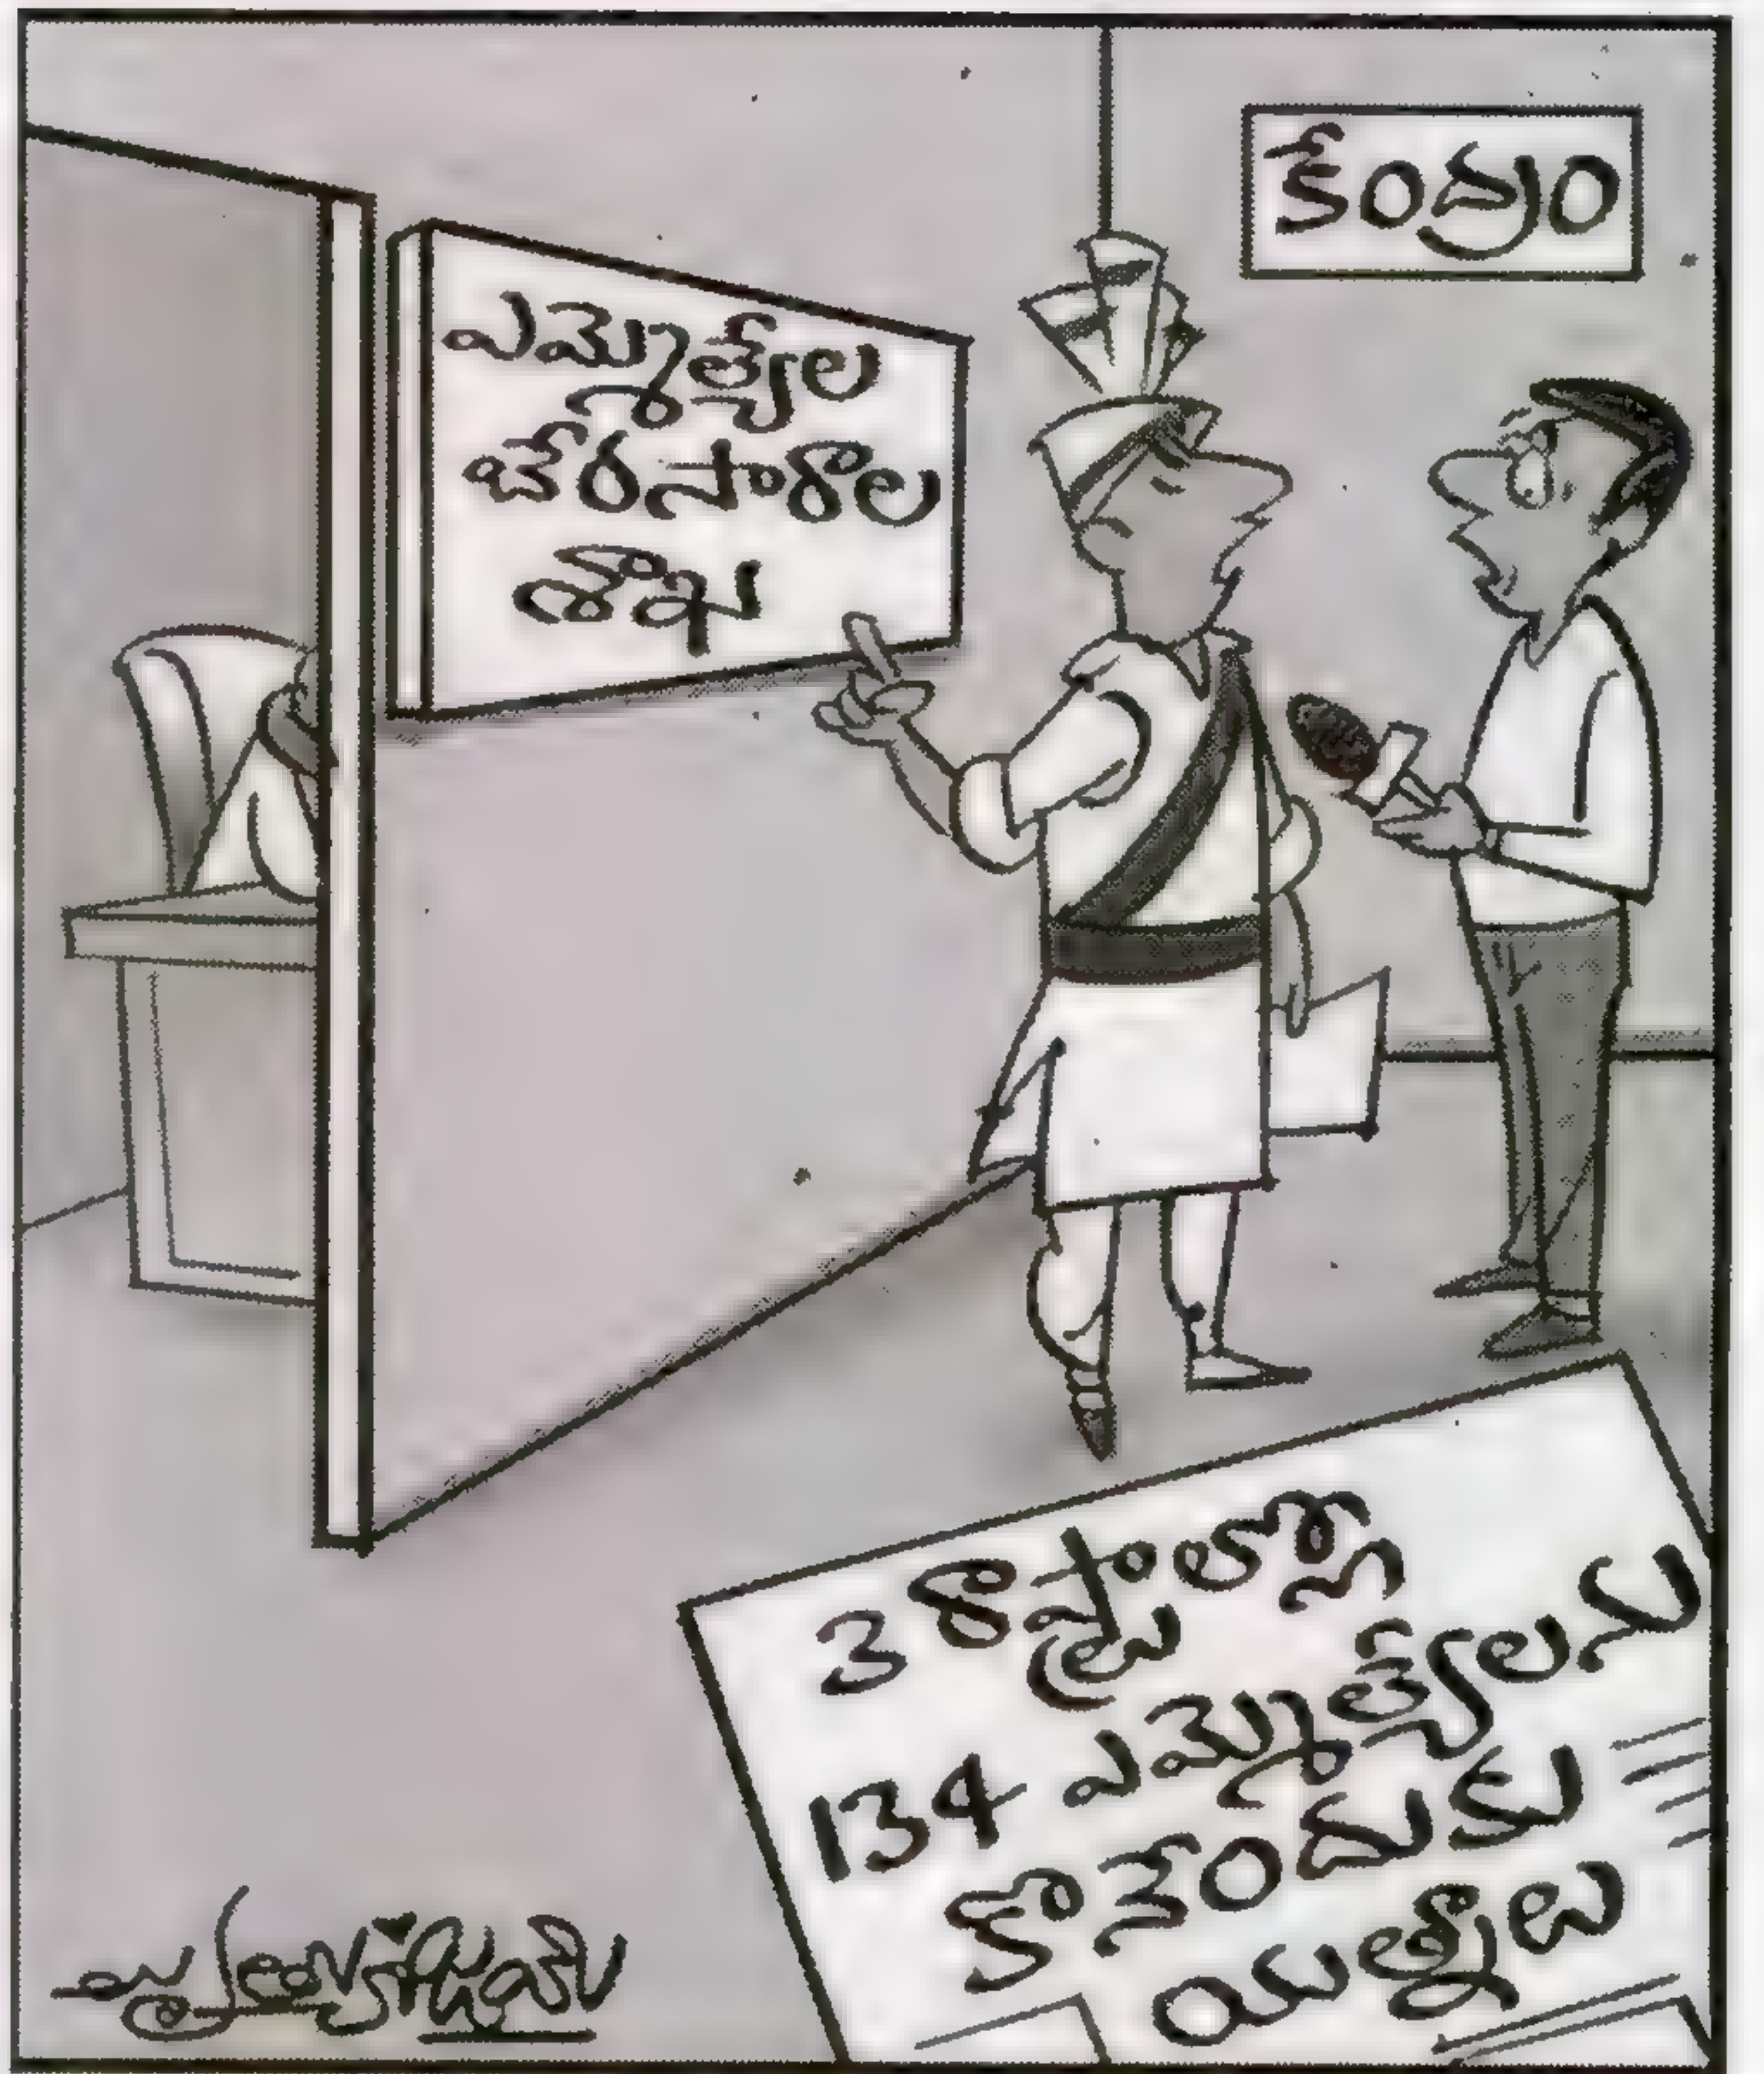 కేంద్రం
ఎమ్మెల్యేల
బేరసారాల
శాఖ
3 రాష్ట్రాలల్లో
134 ఎమ్మెల్యేలను
కొనేందుకు
యత్నాలు